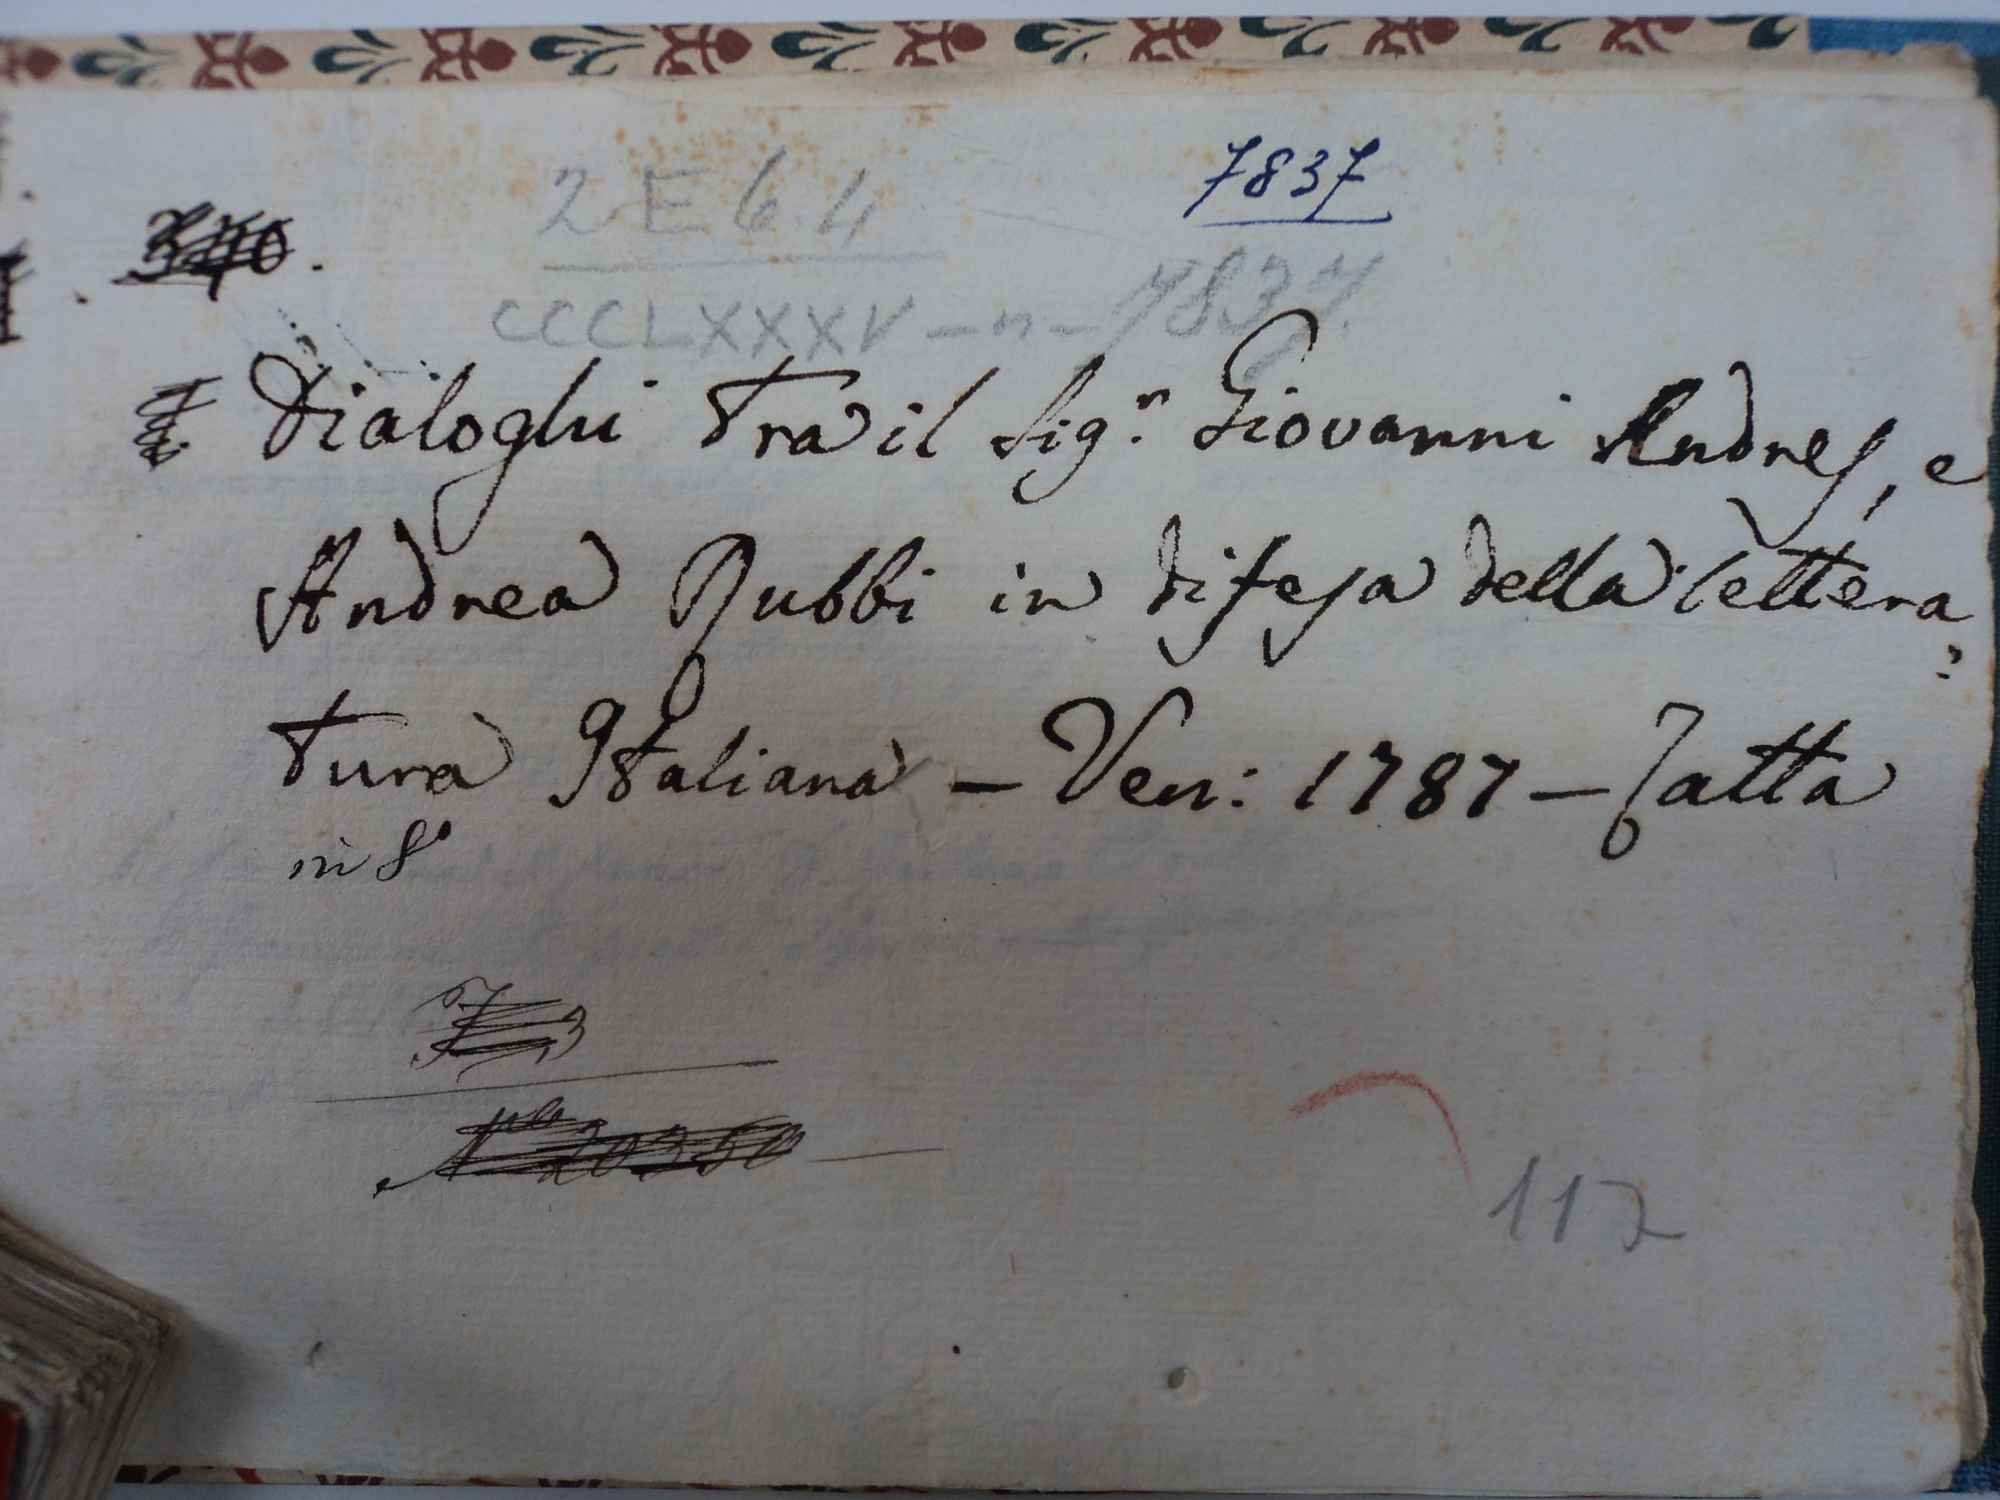 7837
2 E 6.4
340.
CCCLXXXV - n - 7837.
Dialoghi tra il Sig.r Giovanni Andres, e
Andrea Rubbi in difesa della lettera:
tura Italiana - Ven: 1787 - Zatta
in 8°
N° 20350
117